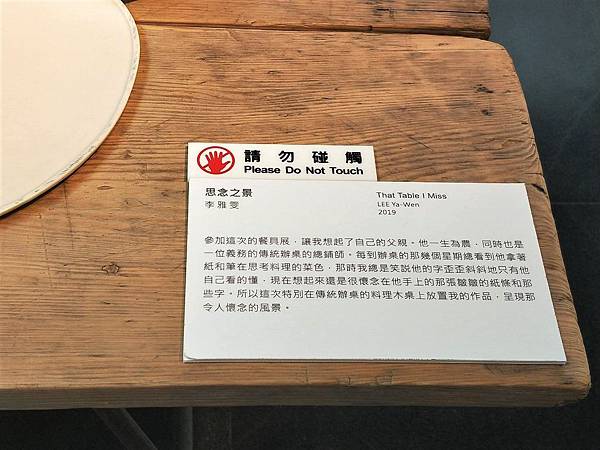 請勿碰觸
Please Do Not Touch
思念之景
李雅雯
That Table I Miss
LEE Ya-Wen
2019
參加這次的餐具展，讓我想起了自己的父親。他一生為農，同時也是
一位義務的傳統辦桌的總鋪師。每到辦桌的那幾個星期總看到他拿著
紙和筆在思考料理的菜色，那時我總是笑說他的字歪歪斜斜地只有他
自己看的懂，現在想起來還是很懷念在他手上的那張皺皺的紙條和那
些字。所以這次特別在傳統辦桌的料理木桌上放置我的作品，呈現那
令人懷念的風景。